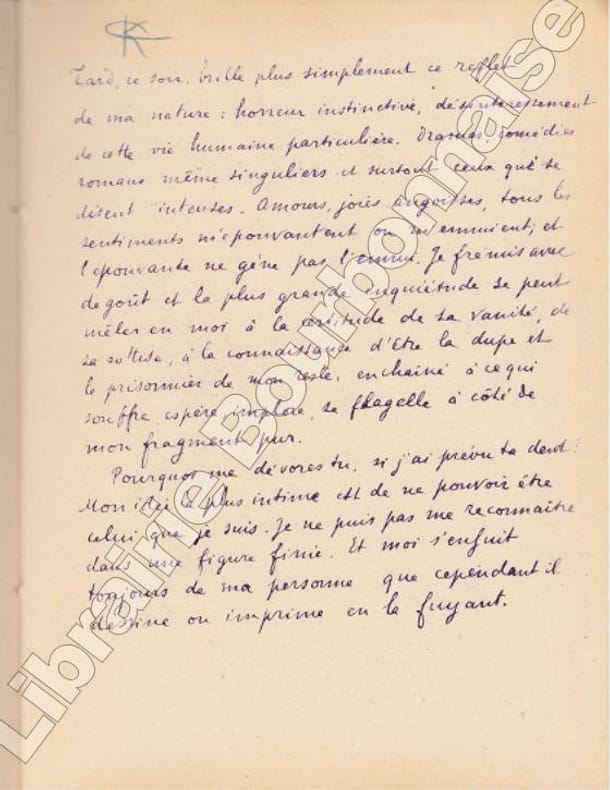 K
Tard, ce soir, brille plus simplement ce reflet
de ma nature : horreur instinctive, désinteressement
de cette vie humaine particulière. Drames, comédies
romans même singuliers et surtout ceux qui se
disent "intenses. Amours, joies angoisses, tous les
sentiments m'épouvantent ou m'ennuient; et
l'épouvante ne gêne pas l'ennui. Je frémis avec
dégoût et la plus grande inquiétude se peut
mêler en moi à la certitude de sa vanité, de
sa sottise, à la connaissance d'être la dupe et
le prisonnier de mon reste, enchaîné à ce qui
souffre espère, implore, se flagelle à côté de
mon fragment pur.
Pourquoi me dévores tu, si j'ai prévu ta dent?
Mon idée la plus intime est de ne pouvoir être
celui que je suis. Je ne puis pas me reconnaître
dans une figure finie. Et moi s'enfuit
toujours de ma personne que cependant il
dessine ou imprime en la fuyant.
Librairie Bourbonnaise